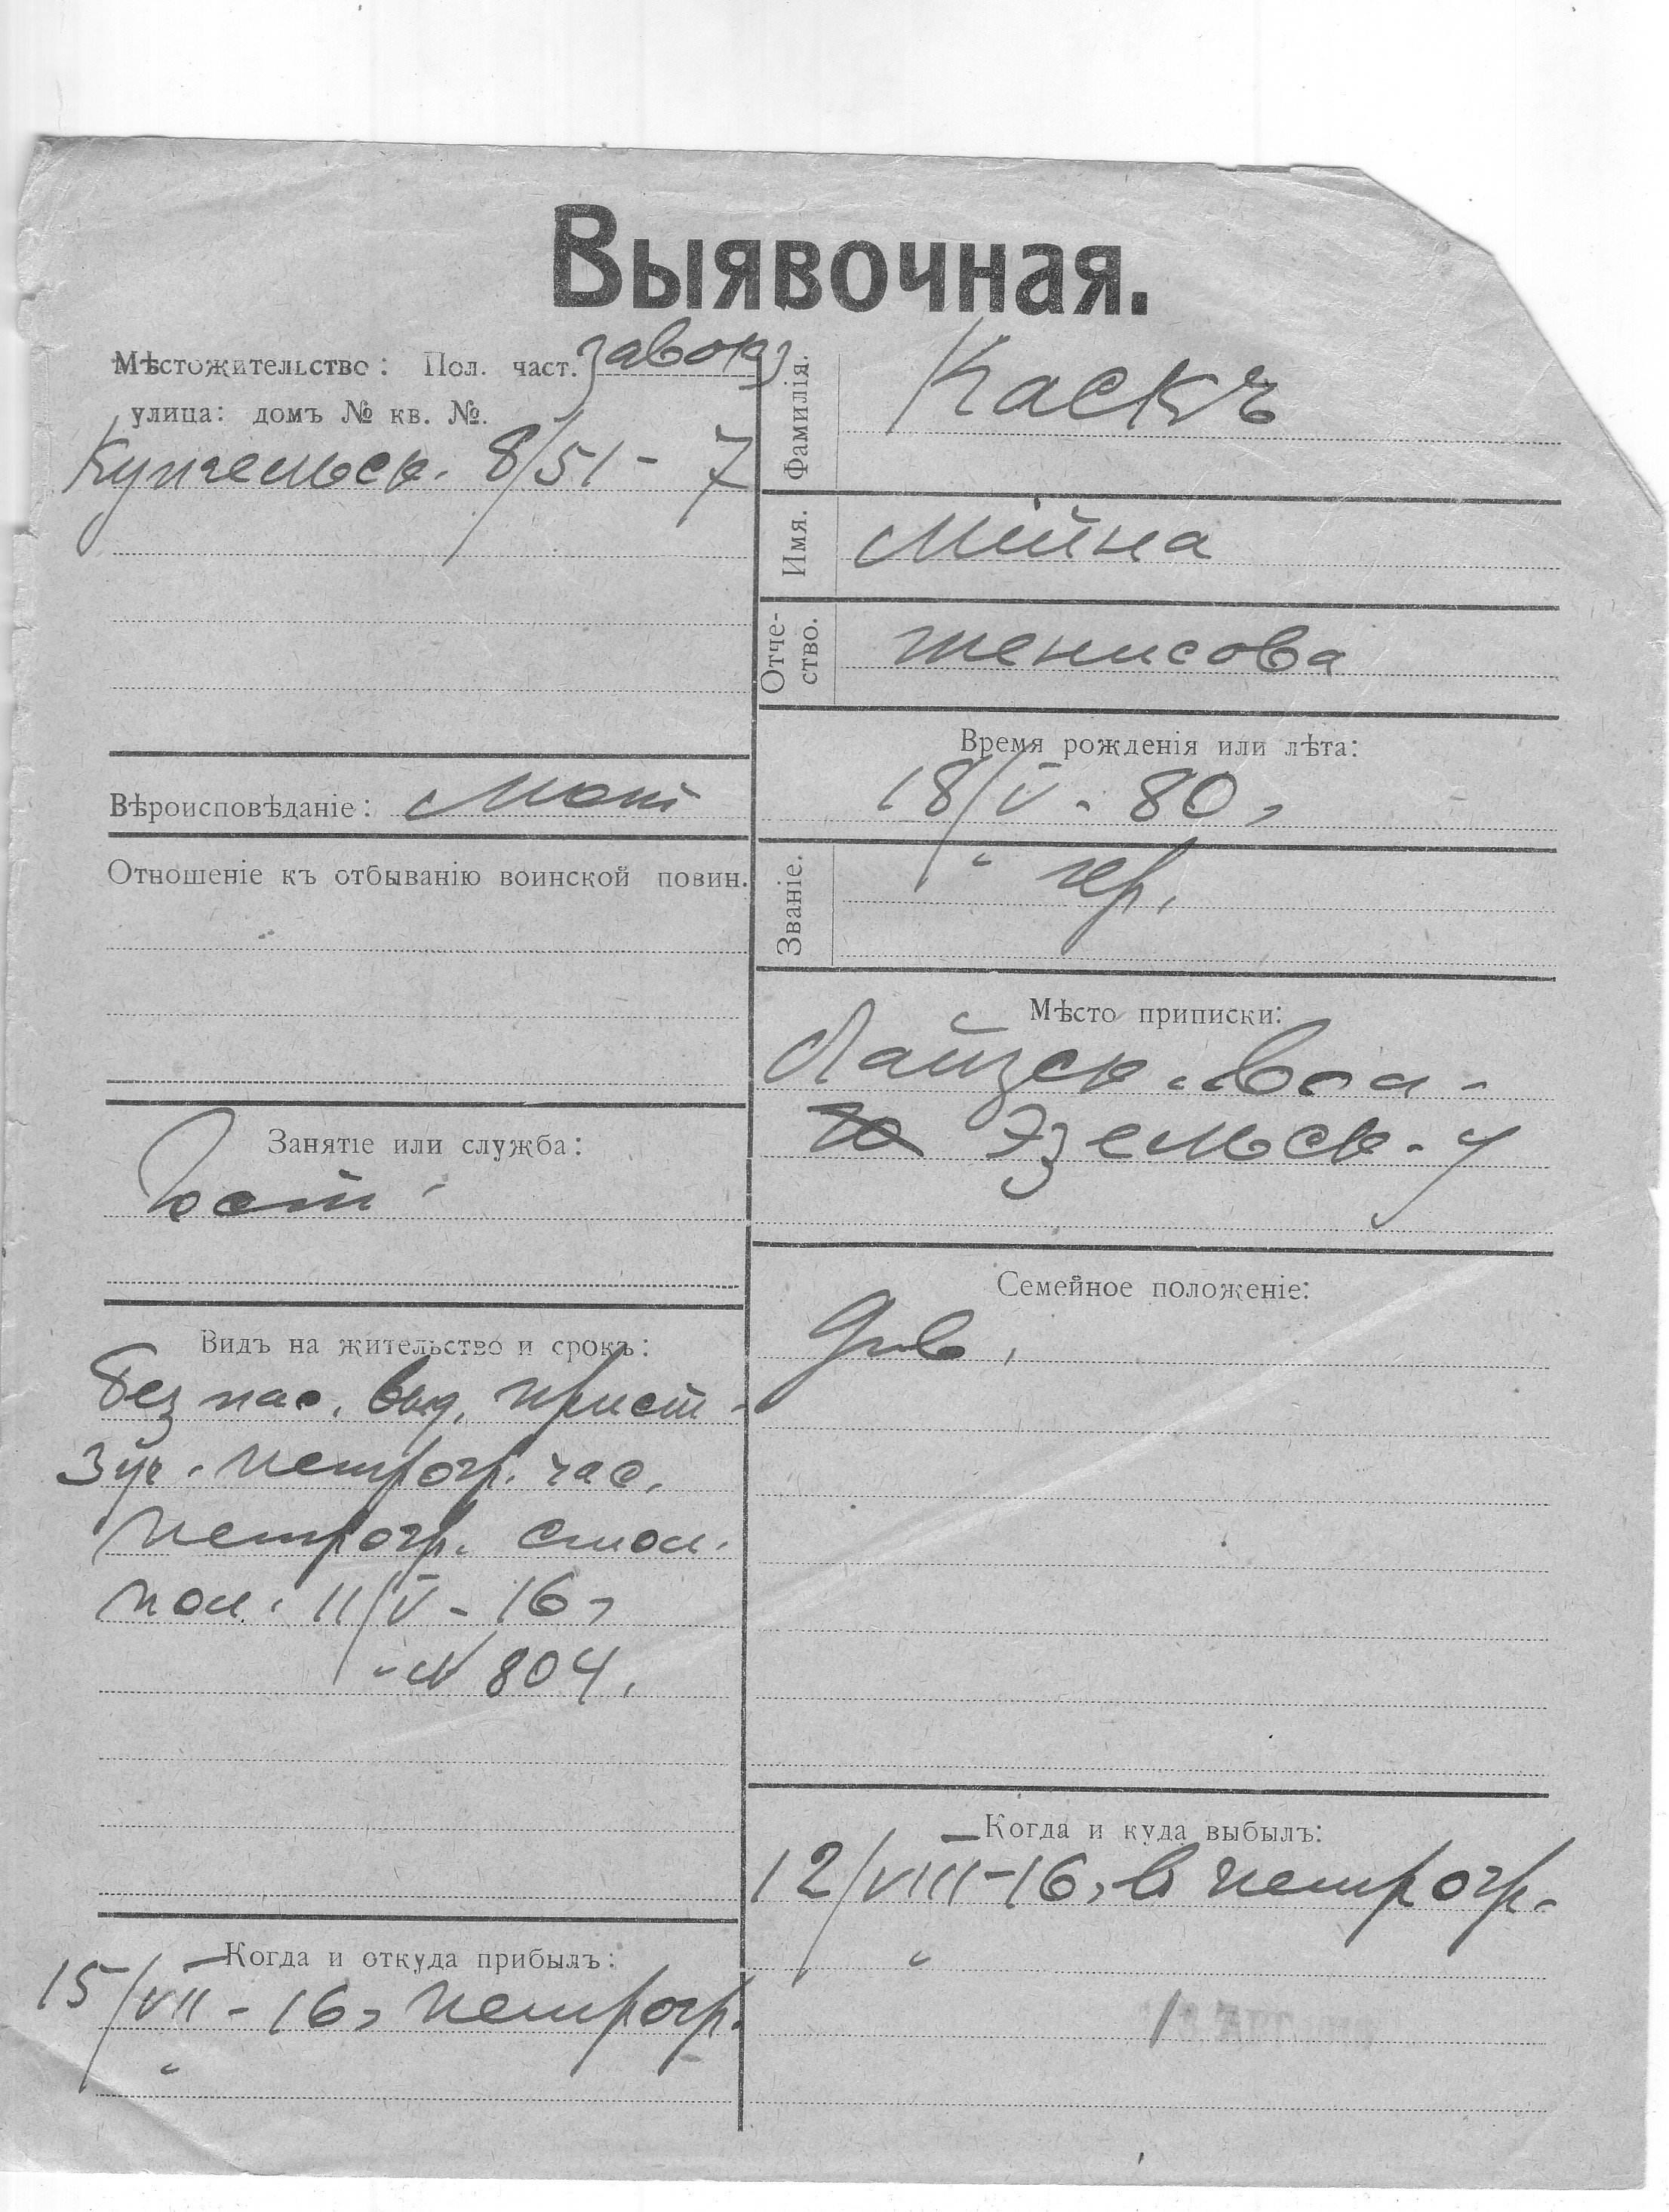 Выявочная.
Мѣстожительство: Пол. част. завокз
улица: домъ № кв. №.
8/51 - 7
Вѣроисповѣданіе: Лют
Отношеніе къ отбыванію воинской повин.
Занятіе или служба:
Видъ на жительство и срокъ:
Без пас. выд. прист -
3 уч. Петрогр. час.
Петрогр. стол.
пол. 11/V - 16 г
№ 804.
Когда и откуда прибылъ:
15/VII - 16 г Петрогр.
Фамилія. Каскъ
Имя. Мійна
Отче-
ство. тенисова
Время рожденія или лѣта:
18/V - 80 г
Званіе. кр.
Мѣсто приписки:
Лайзск. вол -
Эзельск. у
Семейное положеніе:
Дев.
Когда и куда выбылъ:
12/VIII - 16 г в Петрогр.